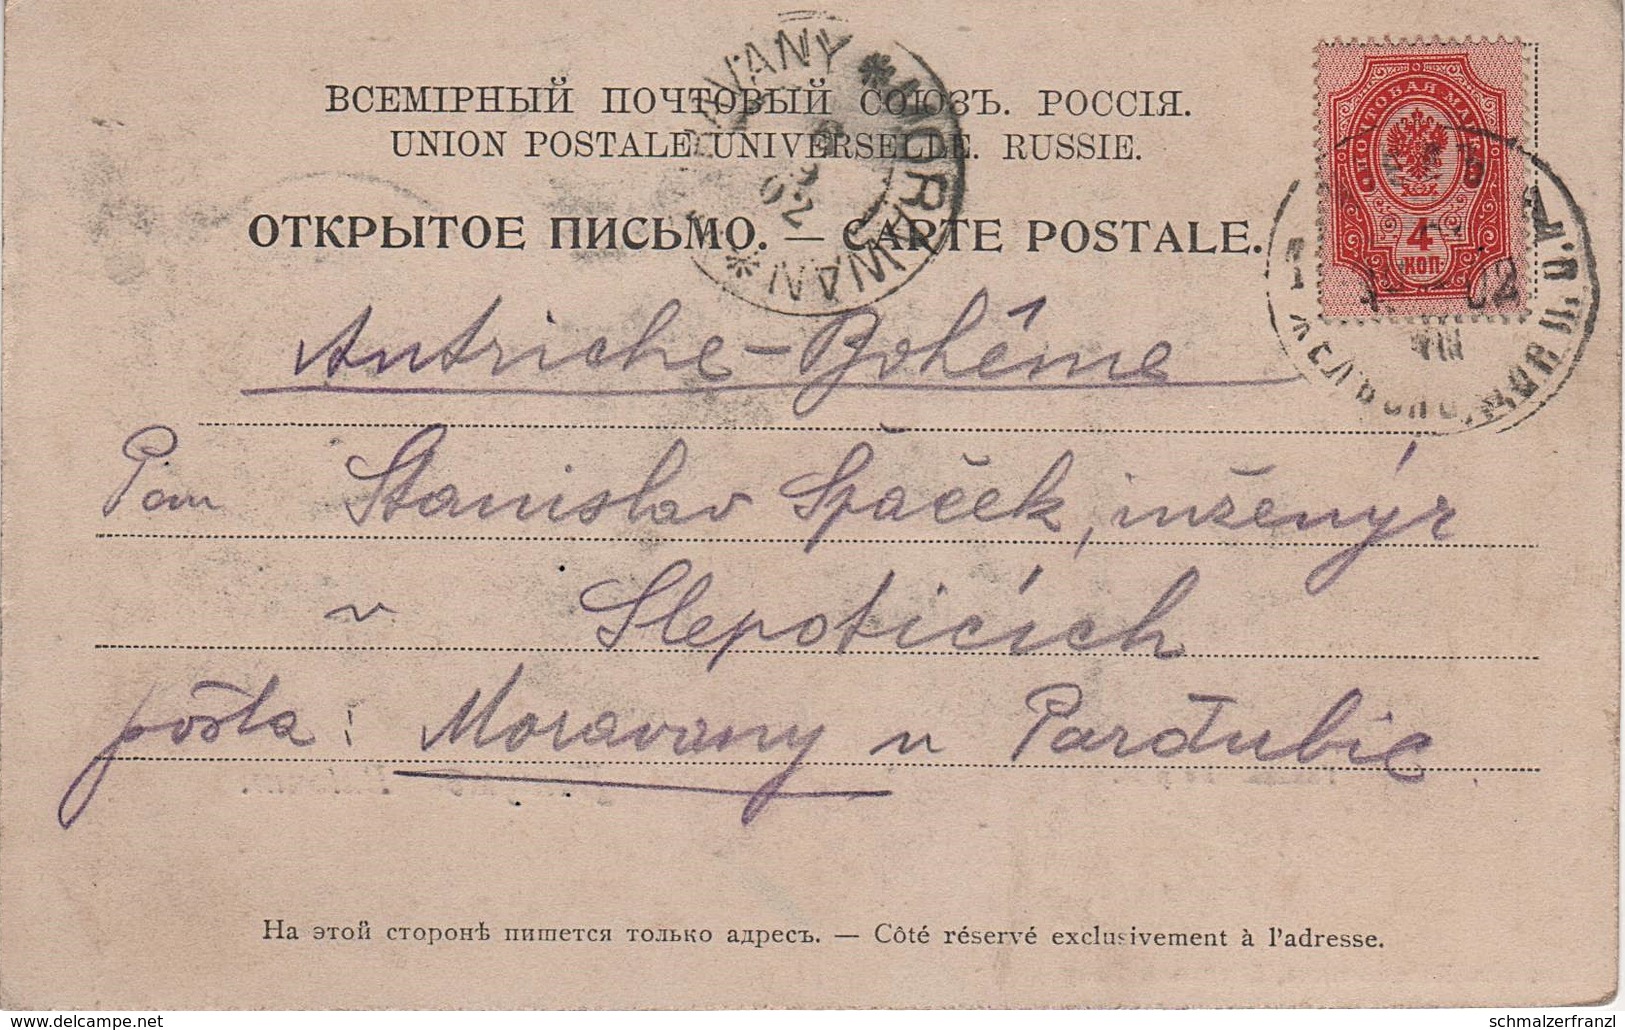 ВСЕМІРНЫЙ ПОЧТОВЫЙ СОЮЗЪ. РОССІЯ.
UNION POSTALE UNIVERSELLE. RUSSIE.
ОТКРЫТОЕ ПИСЬМО. — CARTE POSTALE.
MORAWAN * MORAVANY *
9 02
ПОЧТОВАЯ МАРКА
4
КОП.
02
VIII
Autriche - Bohême
Pan Stanislav Špaček, inženýr
v Slepoticích
pošta: Moravany u Pardubic
На этой сторонѣ пишется только адресъ. — Côté réservé exclusivement à l'adresse.
www.delcampe.net
schmalzerfranzl